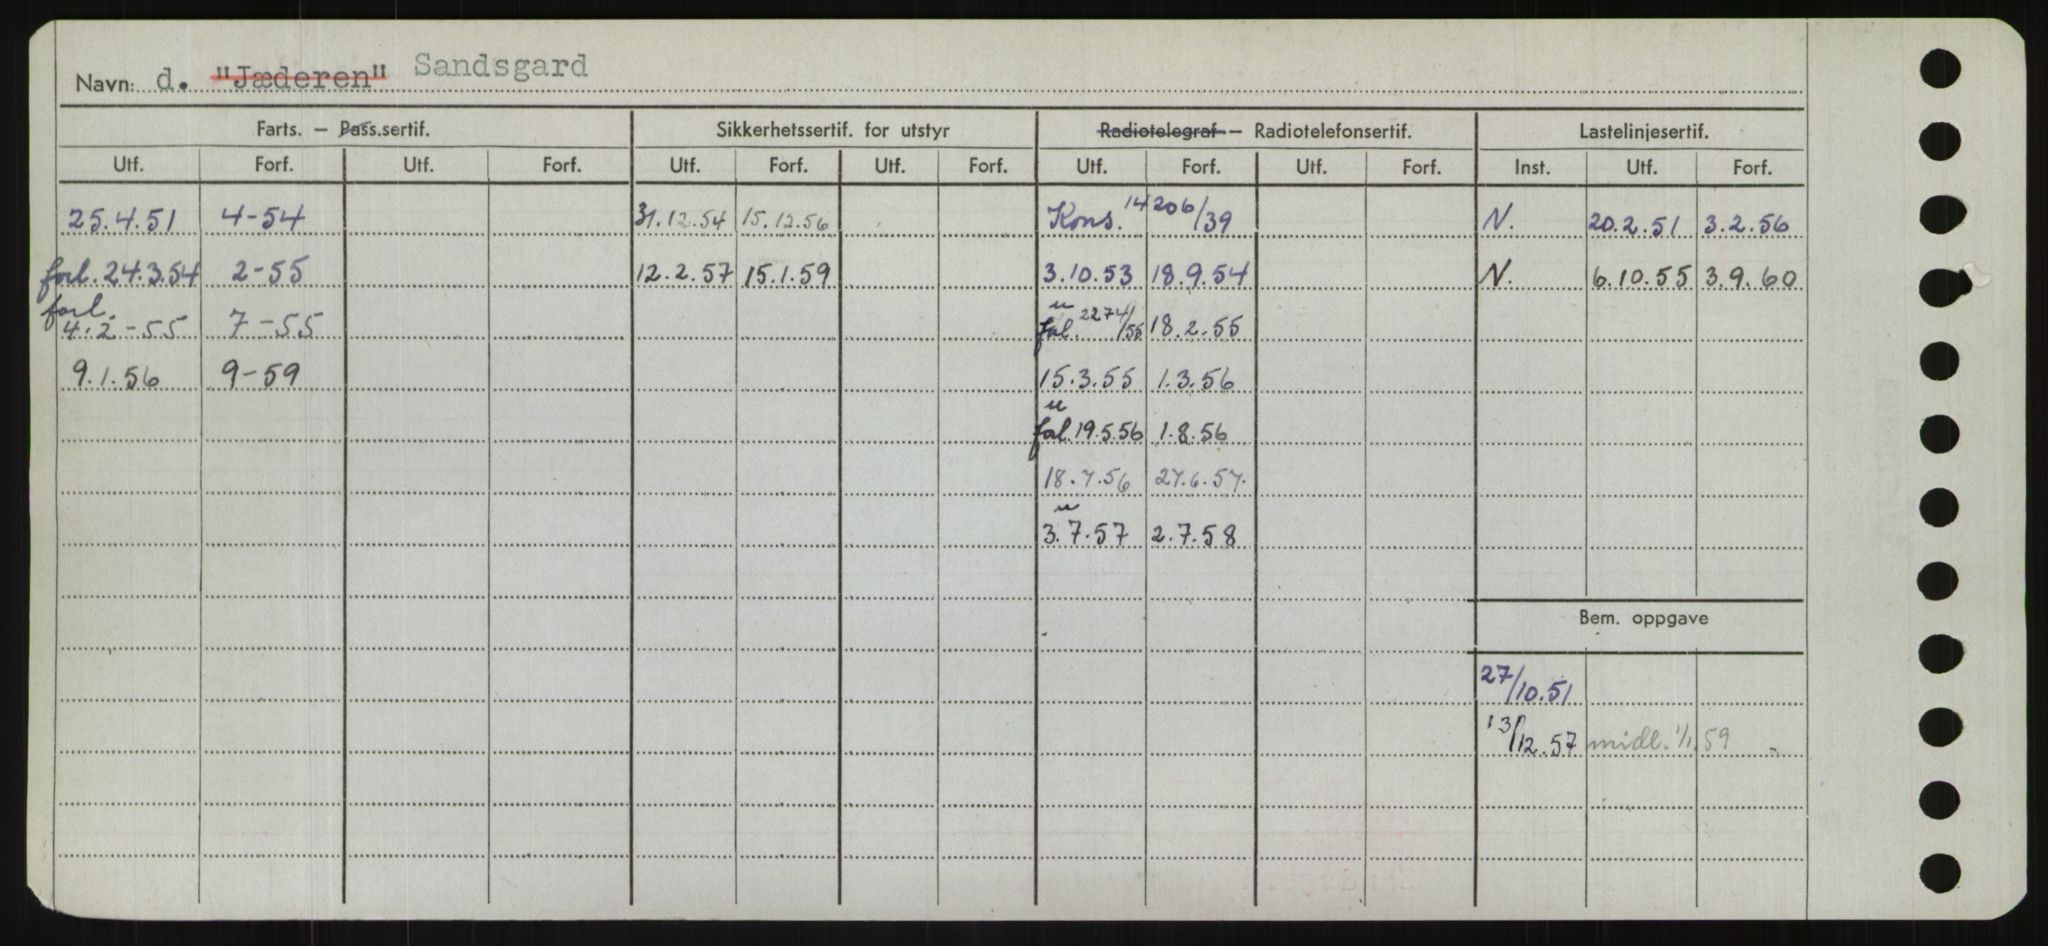 Navn: d. "Jæderen" Sandsgard
Farts. — Pass.sertif. Sikkerhetssertif. for utstyr Radiotelegraf — Radiotelefonsertif. Lastelinjesertif.
Utf. Forf. Utf. Forf. Utf. Forf. Utf. Forf. Utf. Forf. Utf. Forf. Inst. Utf. Forf.
25.4.51 4-54 31.12.54 15.12.56 Kons. 14206/39 N. 20.2.51 3.2.56
forl. 24.3.54 2-55 12.2.57 15.1.59 3.10.53 18.9.54 N. 6.10.55 3.9.60
forl. 4.2-55 7-55 2274/55 18.2.55
9.1.56 9-59 15.3.55 1.3.56
19.5.56 1.8.56
18.7.56 27.6.57.
3.7.57 2.7.58
Bem. oppgave
27/10.51
13/12.57 midl. 1/1.59